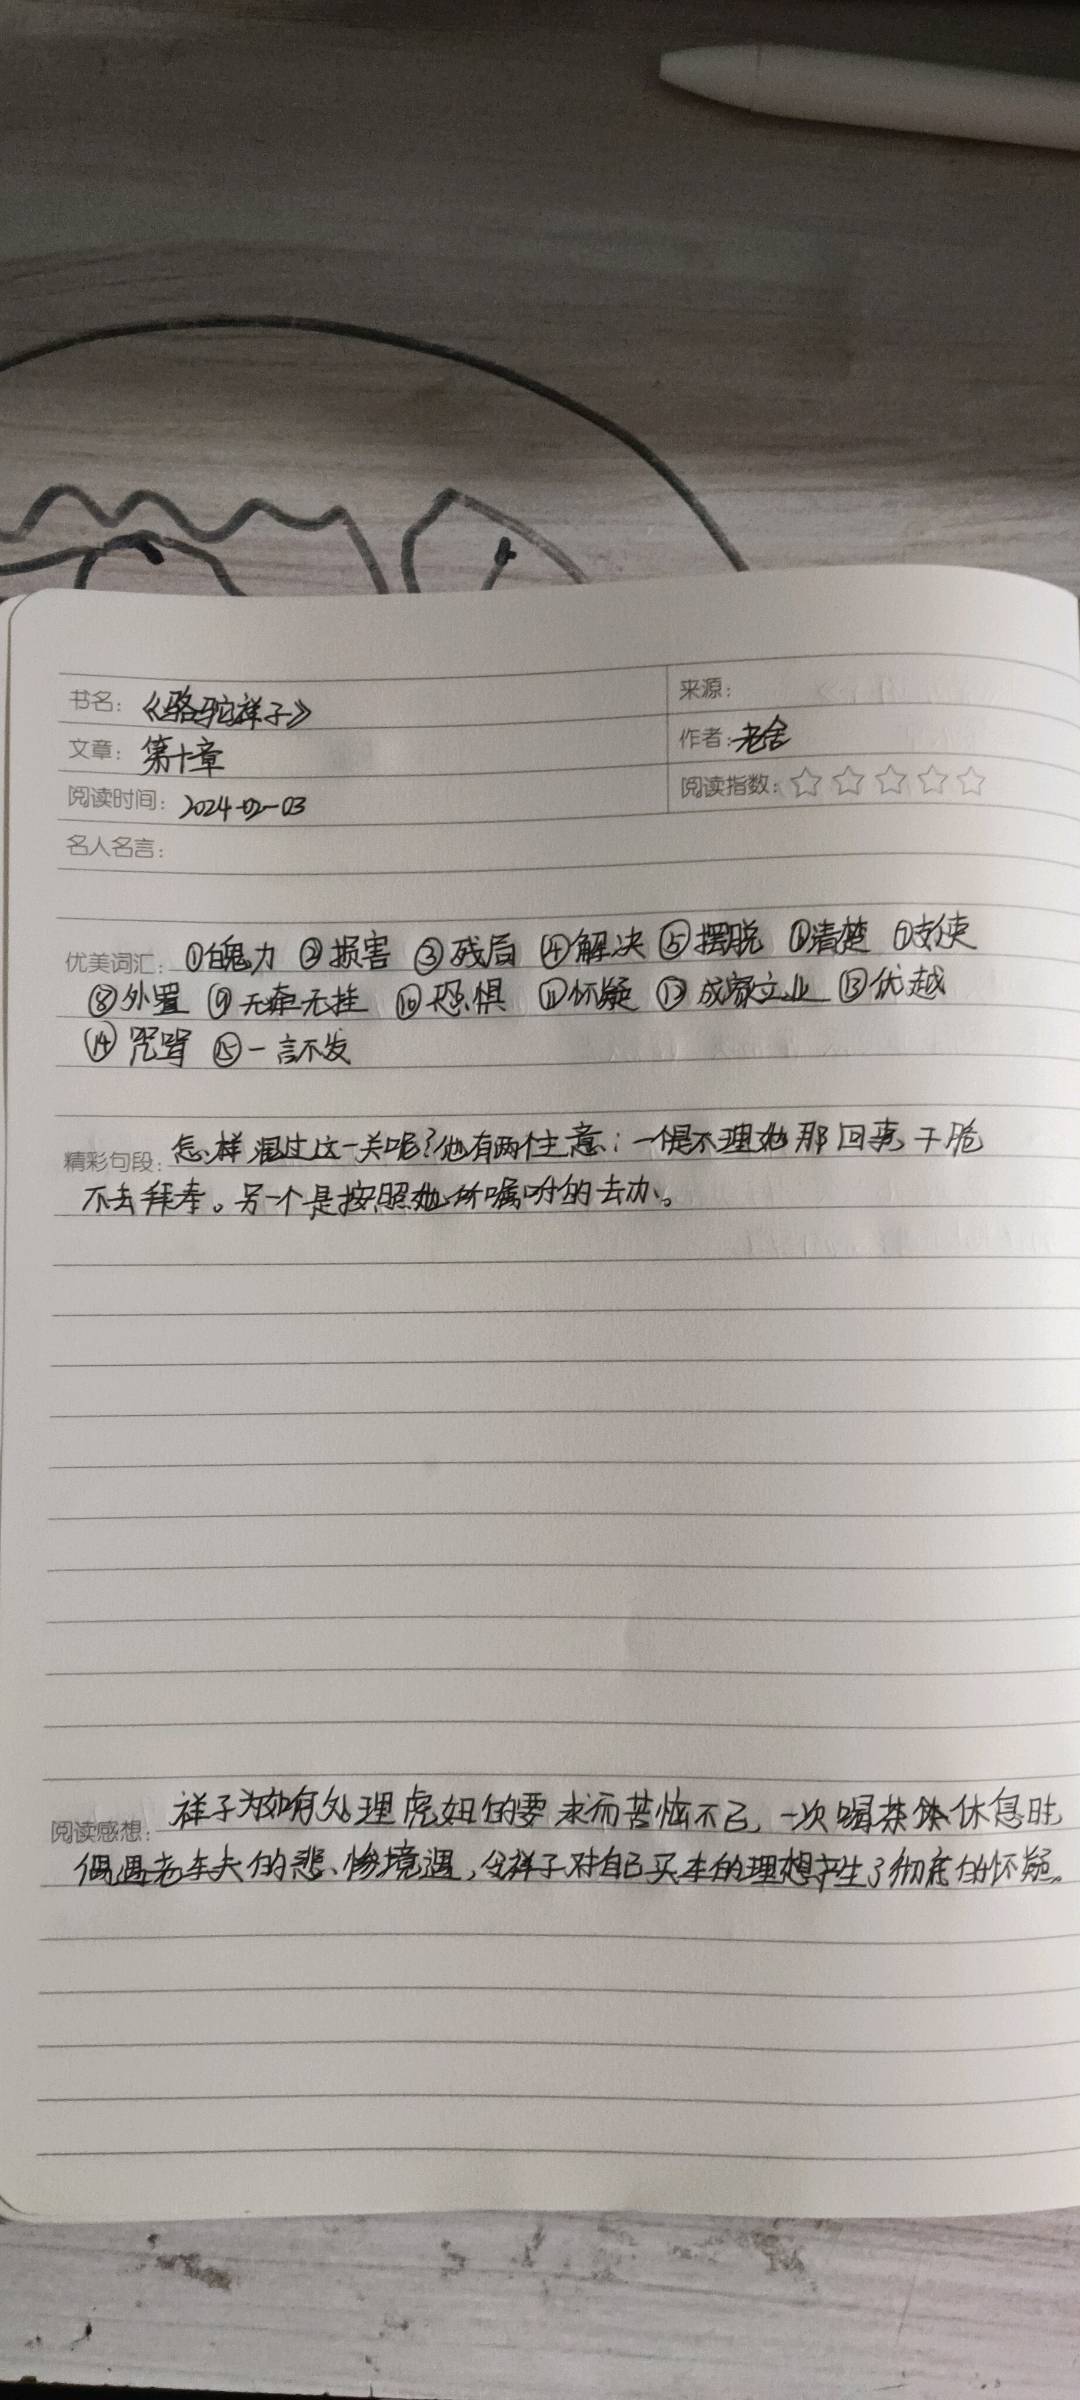 书名：《骆驼祥子》
来源：
文章：第十章
作者：老舍
阅读时间：2024-02-03
阅读指数：
名人名言：
优美词汇：①魄力 ②损害 ③残局 ④解决 ⑤摆脱 ⑥清楚 ⑦支使
⑧外置 ⑨无牵无挂 ⑩恐惧 ⑪怀疑 ⑫成家立业 ⑬优越
⑭咒骂 ⑮一言不发
精彩句段：怎样混过这一关呢？他有两个主意：一个是不理她那回事，干脆
不去拜寿。另一个是按照她所嘱咐的去办。
阅读感想：祥子为如何处理虎妞的要求而苦恼不已，一次喝茶休息时，
偶遇老车夫的悲惨境遇，令祥子对自己买车的理想产生了彻底的怀疑。